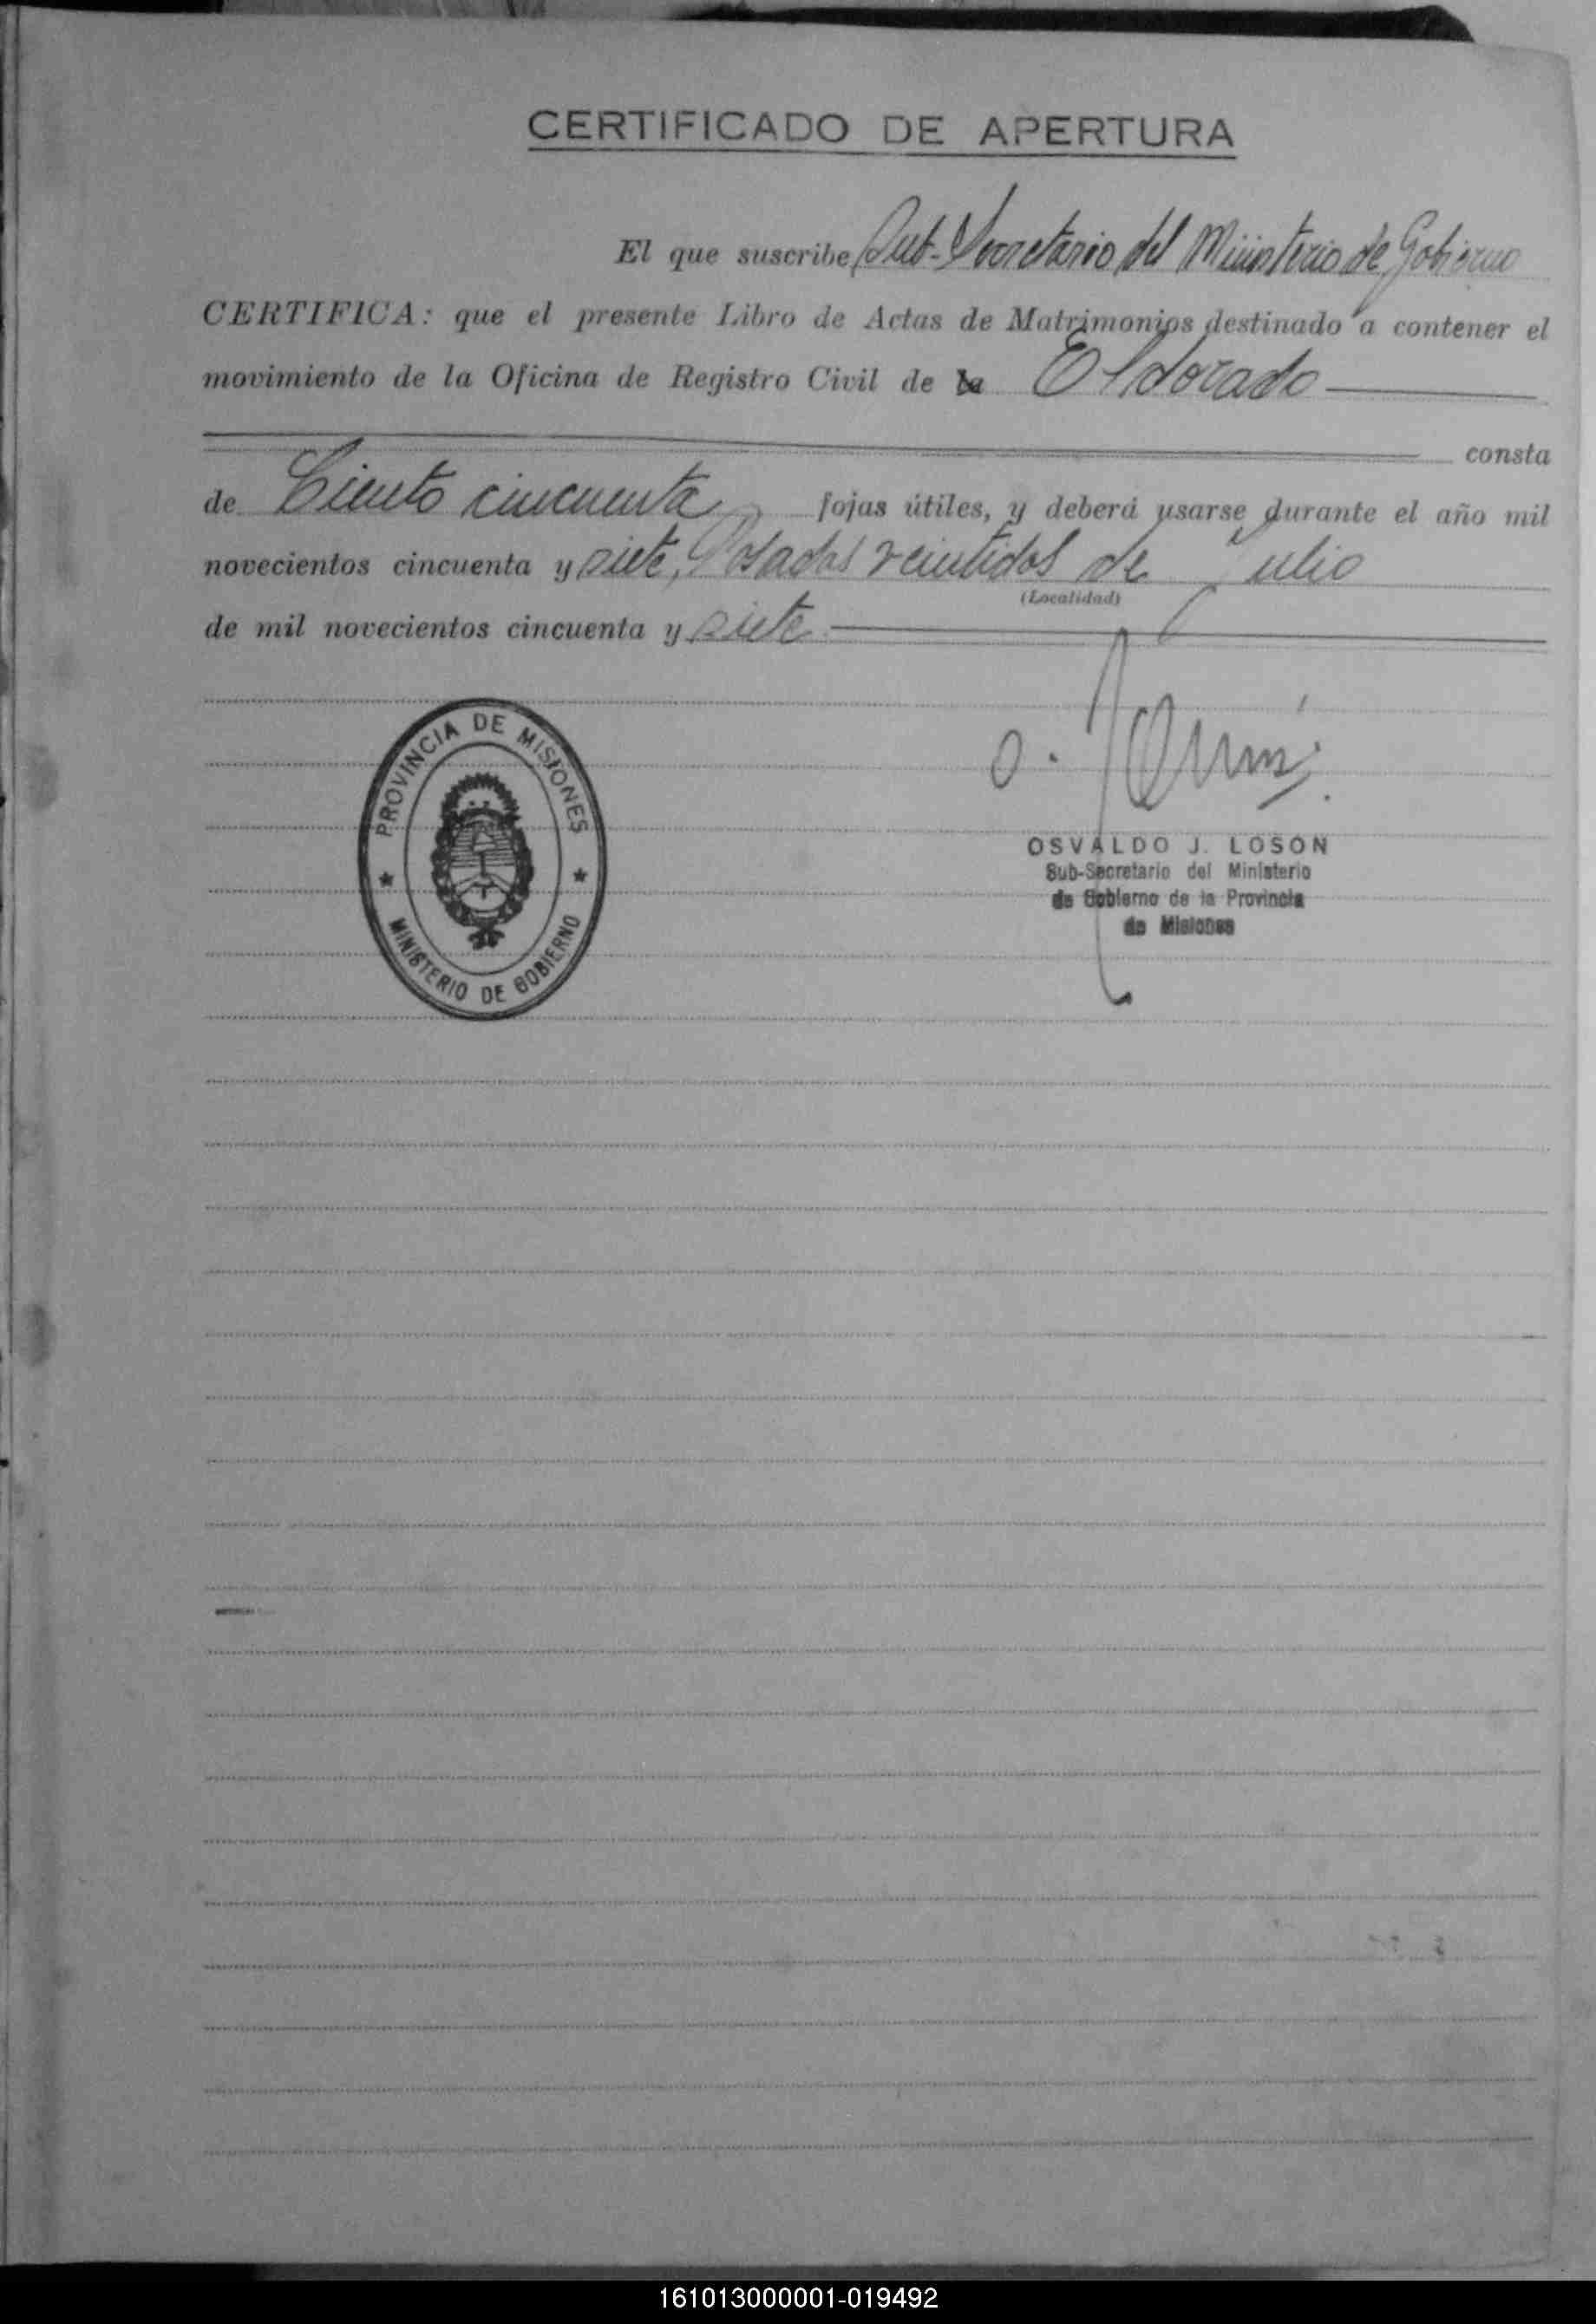 CERTIFICADO DE APERTURA
El que suscribe Sub-Secretario del Ministerio de Gobierno
CERTIFICA: que el presente Libro de Actas de Matrimonios destinado a contener el
movimiento de la Oficina de Registro Civil de la Eldorado
consta
de Ciento cincuenta fojas útiles, y deberá usarse durante el año mil
novecientos cincuenta y siete, Posadas veintidos de Julio
(Localidad)
de mil novecientos cincuenta y siete
PROVINCIA DE MISIONES
MINISTERIO DE GOBIERNO
OSVALDO J. LOSON
Sub-Secretario del Ministerio
de Gobierno de la Provincia
de Misiones
161013000001-019492